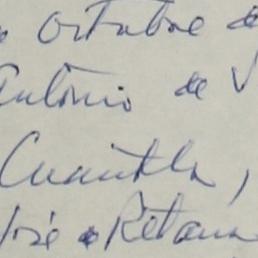 Octubre de
Antonio de V
Cuautla,
José Retana